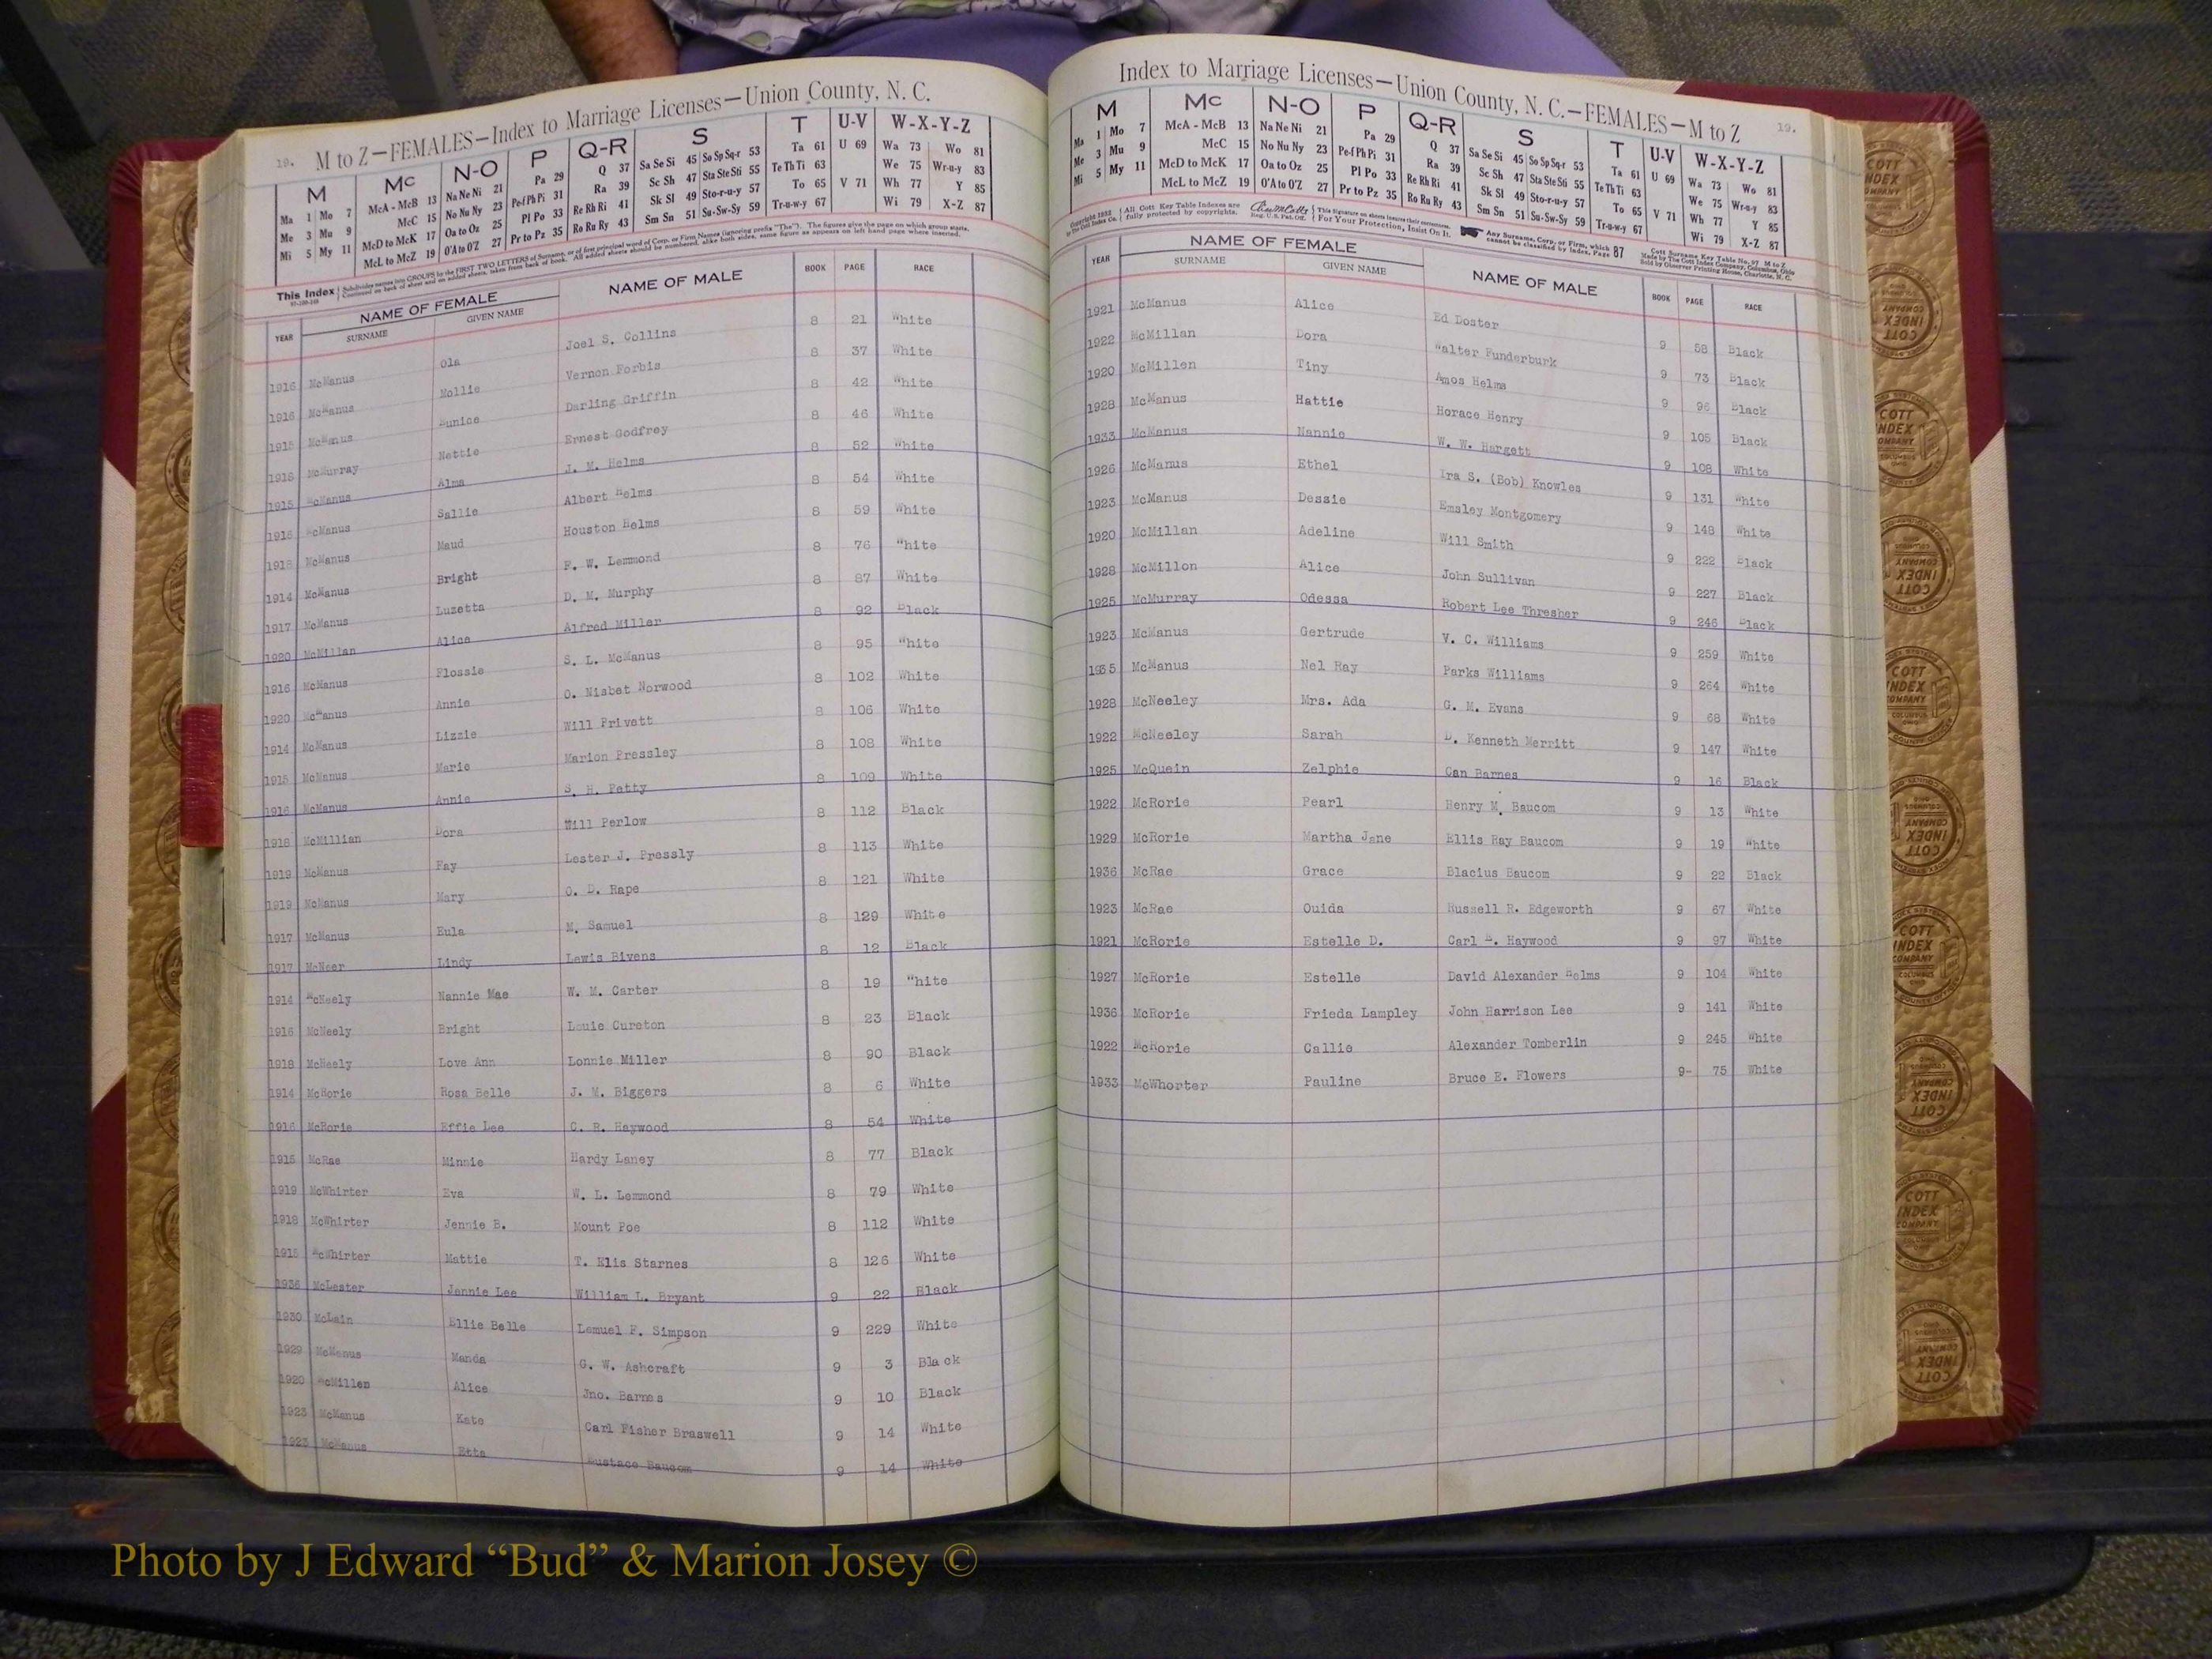 19. M to Z—FEMALES—Index to Marriage Licenses—Union County, N. C.
M Mc N-O P Q-R S T U-V W-X-Y-Z
Ma 1 Mo 7 McA - McB 13 Na Ne Ni 21 Pa 29 Q 37 Sa Se Si 45 So Sp Sq-r 53 Ta 61 U 69 Wa 73 Wo 81
Me 3 Mu 9 McC 15 No Nu Ny 23 Pe-f Ph Pi 31 Ra 39 Sc Sh 47 Sta Ste Sti 55 Te Th Ti 63 We 75 Wr-u-y 83
Mi 5 My 11 McD to McK 17 Oa to Oz 25 Pl Po 33 Re Rh Ri 41 Sk Sl 49 Sto-r-u-y 57 To 65 V 71 Wh 77 Y 85
McL to McZ 19 O'A to O'Z 27 Pr to Pz 35 Ro Ru Ry 43 Sm Sn 51 Su-Sw-Sy 59 Tr-u-w-y 67 Wi 79 X-Z 87
This Index Subdivides names into GROUPS by the FIRST TWO LETTERS of Surname, or of first principal word of Corp. or Firm Names (ignoring prefix "The"). The figures give the page on which group starts.
Continued on back of sheet and on added sheets, taken from back of book. All added sheets should be numbered, alike both sides, same figure as appears on left hand page where inserted.
NAME OF FEMALE NAME OF MALE BOOK PAGE RACE
YEAR SURNAME GIVEN NAME
1916 McManus Ola Joel S. Collins 8 21 White
1916 McManus Mollie Vernon Forbis 8 37 White
1915 McManus Eunice Darling Griffin 8 42 White
1918 McMurray Nettie Ernest Godfrey 8 46 White
1915 McManus Alma J. M. Helms 8 52 White
McManus Sallie Albert Helms 8 54 White
McManus Maud Houston Helms 8 59 White
1914 McManus Bright F. W. Lemmond 8 76 White
1917 McManus Luzetta D. M. Murphy 8 87 White
1920 McMillan Alice Alfred Miller 8 92 Black
1916 McManus Flossie S. L. McManus 8 95 White
1920 McManus Annie O. Nisbet Norwood 8 102 White
1914 McManus Lizzie Will Privett 8 106 White
1915 McManus Marie Marion Pressley 8 108 White
1916 McManus Annie S. H. Petty 8 109 White
1918 McMillian Dora Will Perlow 8 112 Black
1919 McManus Fay Lester J. Pressly 8 113 White
1919 McManus Mary O. D. Rape 8 121 White
1917 McManus Eula M. Samuel 8 129 White
1917 McNeer Lindy Lewis Bivens 8 12 Black
1914 McNeely Nannie Mae W. M. Carter 8 19 White
1916 McNeely Bright Louie Cureton 8 23 Black
1918 McNeely Love Ann Lonnie Miller 8 90 Black
1914 McRorie Rosa Belle J. M. Biggers 8 6 White
1916 McRorie Effie Lee C. R. Haywood 8 54 White
1915 McRae Minnie Hardy Laney 8 77 Black
1919 McWhirter Eva W. L. Lemmond 8 79 White
1918 McWhirter Jennie B. Mount Poe 8 112 White
1915 McWhirter Mattie T. Elis Starnes 8 126 White
1936 McLester Jennie Lee William L. Bryant 9 22 Black
1930 McLain Ellie Belle Lemuel F. Simpson 9 229 White
1929 McManus Manda G. W. Ashcraft 9 3 Black
1920 McMillen Alice Jno. Barnes 9 10 Black
1923 McManus Kate Carl Fisher Braswell 9 14 White
1923 McManus Etta Eustace Baucom 9 14 White
Index to Marriage Licenses—Union County, N. C.—FEMALES—M to Z 19.
M Mc N-O P Q-R S T U-V W-X-Y-Z
Ma 1 Mo 7 McA - McB 13 Na Ne Ni 21 Pa 29 Q 37 Sa Se Si 45 So Sp Sq-r 53 Ta 61 U 69 Wa 73 Wo 81
Me 3 Mu 9 McC 15 No Nu Ny 23 Pe-f Ph Pi 31 Ra 39 Sc Sh 47 Sta Ste Sti 55 Te Th Ti 63 We 75 Wr-u-y 83
Mi 5 My 11 McD to McK 17 Oa to Oz 25 Pl Po 33 Re Rh Ri 41 Sk Sl 49 Sto-r-u-y 57 To 65 V 71 Wh 77 Y 85
McL to McZ 19 O'A to O'Z 27 Pr to Pz 35 Ro Ru Ry 43 Sm Sn 51 Su-Sw-Sy 59 Tr-u-w-y 67 Wi 79 X-Z 87
All Cott Key Table Indexes are fully protected by copyrights. This signature on sheets insures their correctness. For Your Protection, Insist On It. Any Surname, Corp. or Firm, which cannot be classified by Index, Page 87
Cott Surname Key Table No. 97 M to Z Made by The Cott Index Company, Columbus, Ohio Sold by Observer Printing House, Charlotte, N. C.
NAME OF FEMALE NAME OF MALE BOOK PAGE RACE
YEAR SURNAME GIVEN NAME
1921 McManus Alice Ed Doster 9 58 Black
1922 McMillan Dora Walter Funderburk 9 73 Black
1920 McMillen Tiny Amos Helms 9 96 Black
1928 McManus Hattie Horace Henry 9 105 Black
1933 McManus Nannie W. W. Hargett 9 108 White
1926 McManus Ethel Ira S. (Bob) Knowles 9 131 White
1923 McManus Dessie Emsley Montgomery 9 148 White
1920 McMillan Adeline Will Smith 9 222 Black
1928 McMillon Alice John Sullivan 9 227 Black
1925 McMurray Odessa Robert Lee Thresher 9 246 Black
1923 McManus Gertrude V. C. Williams 9 259 White
1935 McManus Nel Ray Parks Williams 9 264 White
1928 McNeeley Mrs. Ada G. M. Evans 9 68 White
1922 McNeeley Sarah D. Kenneth Merritt 9 147 White
1925 McQuein Zelphie Can Barnes 9 16 Black
1922 McRorie Pearl Henry M. Baucom 9 13 White
1929 McRorie Martha Jane Ellis Ray Baucom 9 19 White
1936 McRae Grace Blacius Baucom 9 22 Black
1923 McRae Ouida Russell R. Edgeworth 9 67 White
1921 McRorie Estelle D. Carl B. Haywood 9 97 White
1927 McRorie Estelle David Alexander Helms 9 104 White
1936 McRorie Frieda Lampley John Harrison Lee 9 141 White
1922 McRorie Callie Alexander Tomberlin 9 245 White
1933 McWhorter Pauline Bruce E. Flowers 9- 75 White
COTT INDEX COMPANY COLUMBUS OHIO
Photo by J Edward “Bud” & Marion Josey ©